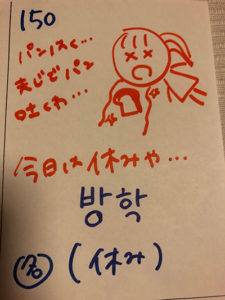 150
パンはく…
まじでパン
吐くわ…
今日は休みや…
방학
名 (休み)